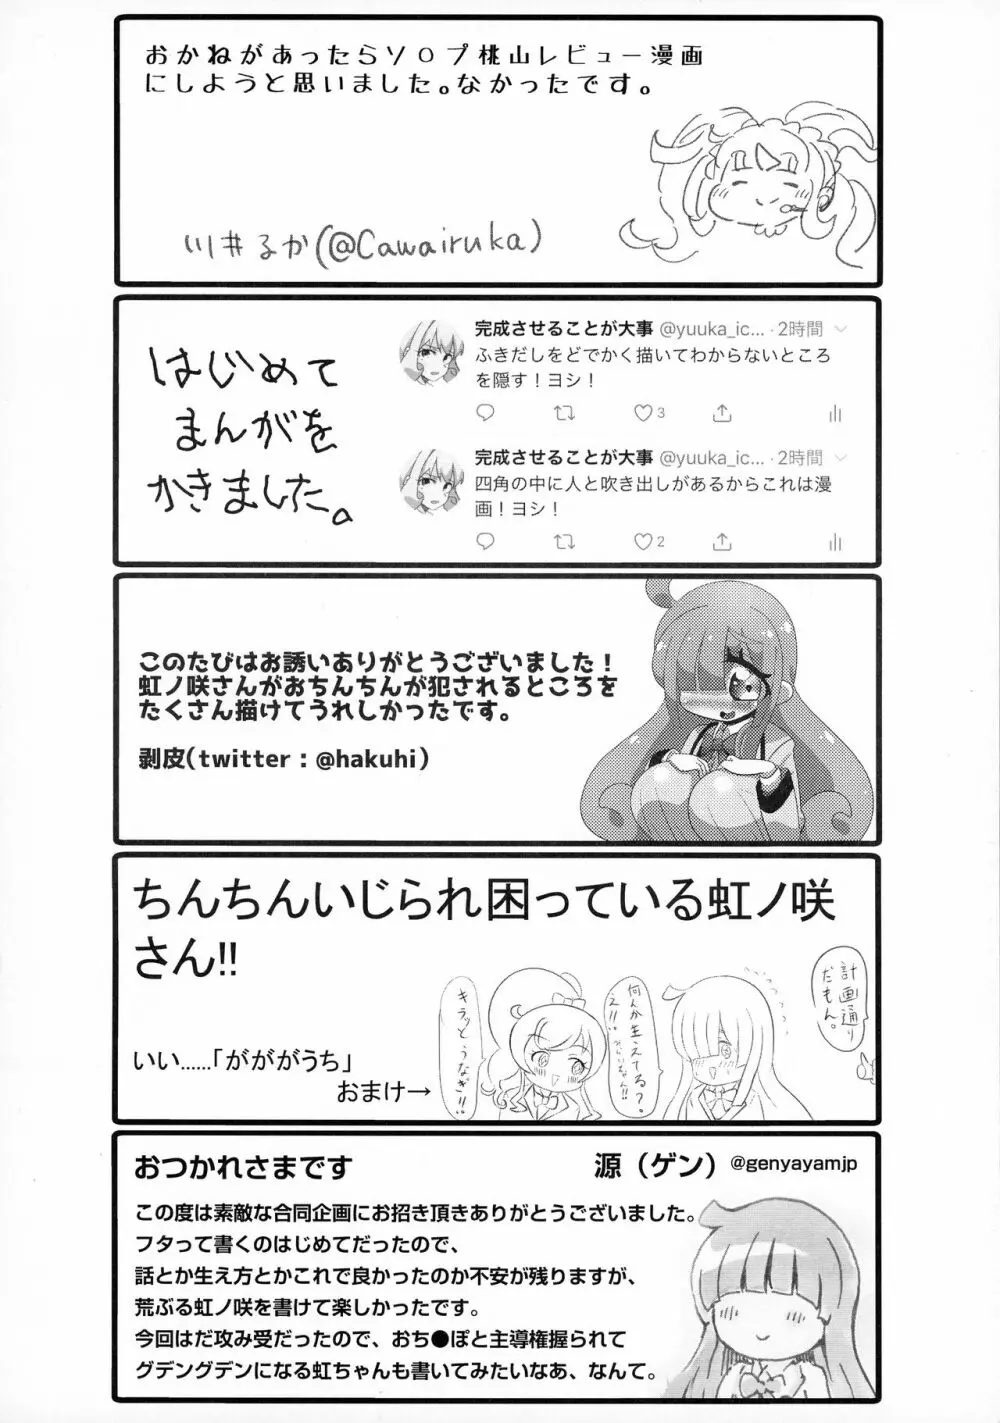 おかねがあったらソ〇プ桃山レビュー漫画
にしようと思いました。なかったです。
川井るか(@Cawairuka)
はじめて
まんがを
かきました。
完成させることが大事 @yuuka_ic... · 2時間
ふきだしをどでかく描いてわからないところ
を隠す！ヨシ！
3
完成させることが大事 @yuuka_ic... · 2時間
四角の中に人と吹き出しがあるからこれは漫
画！ヨシ！
2
このたびはお誘いありがとうございました！
虹ノ咲さんがおちんちんが犯されるところを
たくさん描けてうれしかったです。
剥皮(twitter：@hakuhi)
ちんちんいじられ困っている虹ノ咲
さん!!
計画通り
だもん。
何んか生えてる？
え!!
キラッとうなぎ!!
いい……「がががうち」
おまけ→
おつかれさまです
源（ゲン）@genyayamjp
この度は素敵な合同企画にお招き頂きありがとうございました。
フタって書くのはじめてだったので、
話とか生え方とかこれで良かったのか不安が残りますが、
荒ぶる虹ノ咲を書けて楽しかったです。
今回はだ攻み受だったので、おち●ぽと主導権握られて
グデングデンになる虹ちゃんも書いてみたいなあ、なんて。